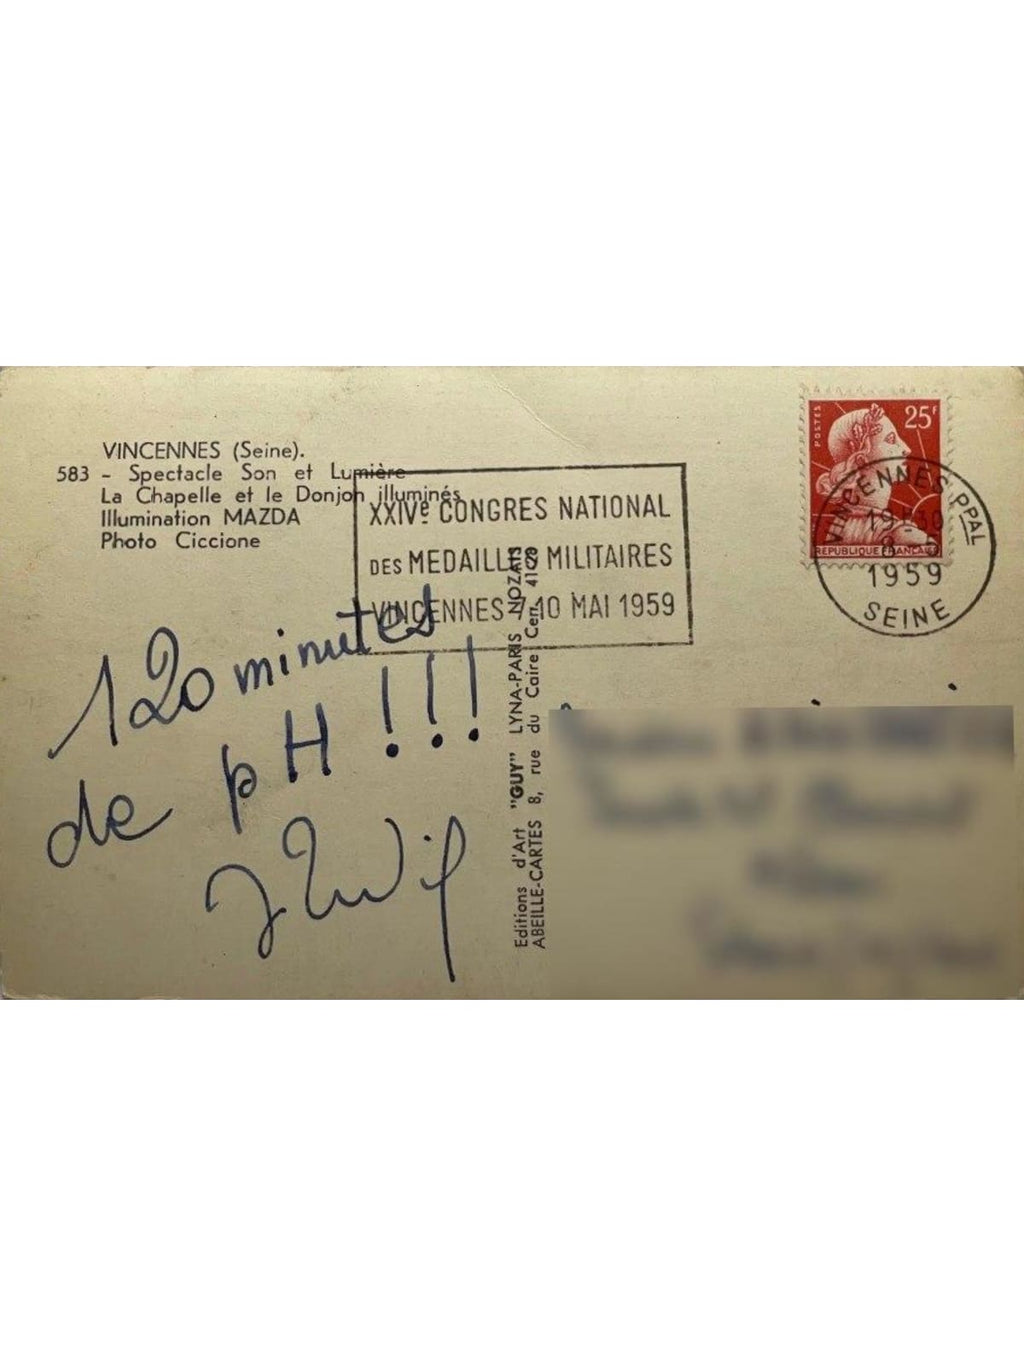 VINCENNES (Seine).
583 - Spectacle Son et Lumière
La Chapelle et le Donjon illuminés
Illumination MAZDA
Photo Ciccione
XXIVe CONGRES NATIONAL
DES MEDAILLES MILITAIRES
VINCENNES 7.10 MAI 1959
POSTES
25F
REPUBLIQUE FRANCAISE
VINCENNES PPAL
1959
SEINE
120 minutes
de pH !!!
Editions d'Art "GUY" LYNA-PARIS NOZAIS
ABEILLE-CARTES 8, rue du Caire Cen. 41-20